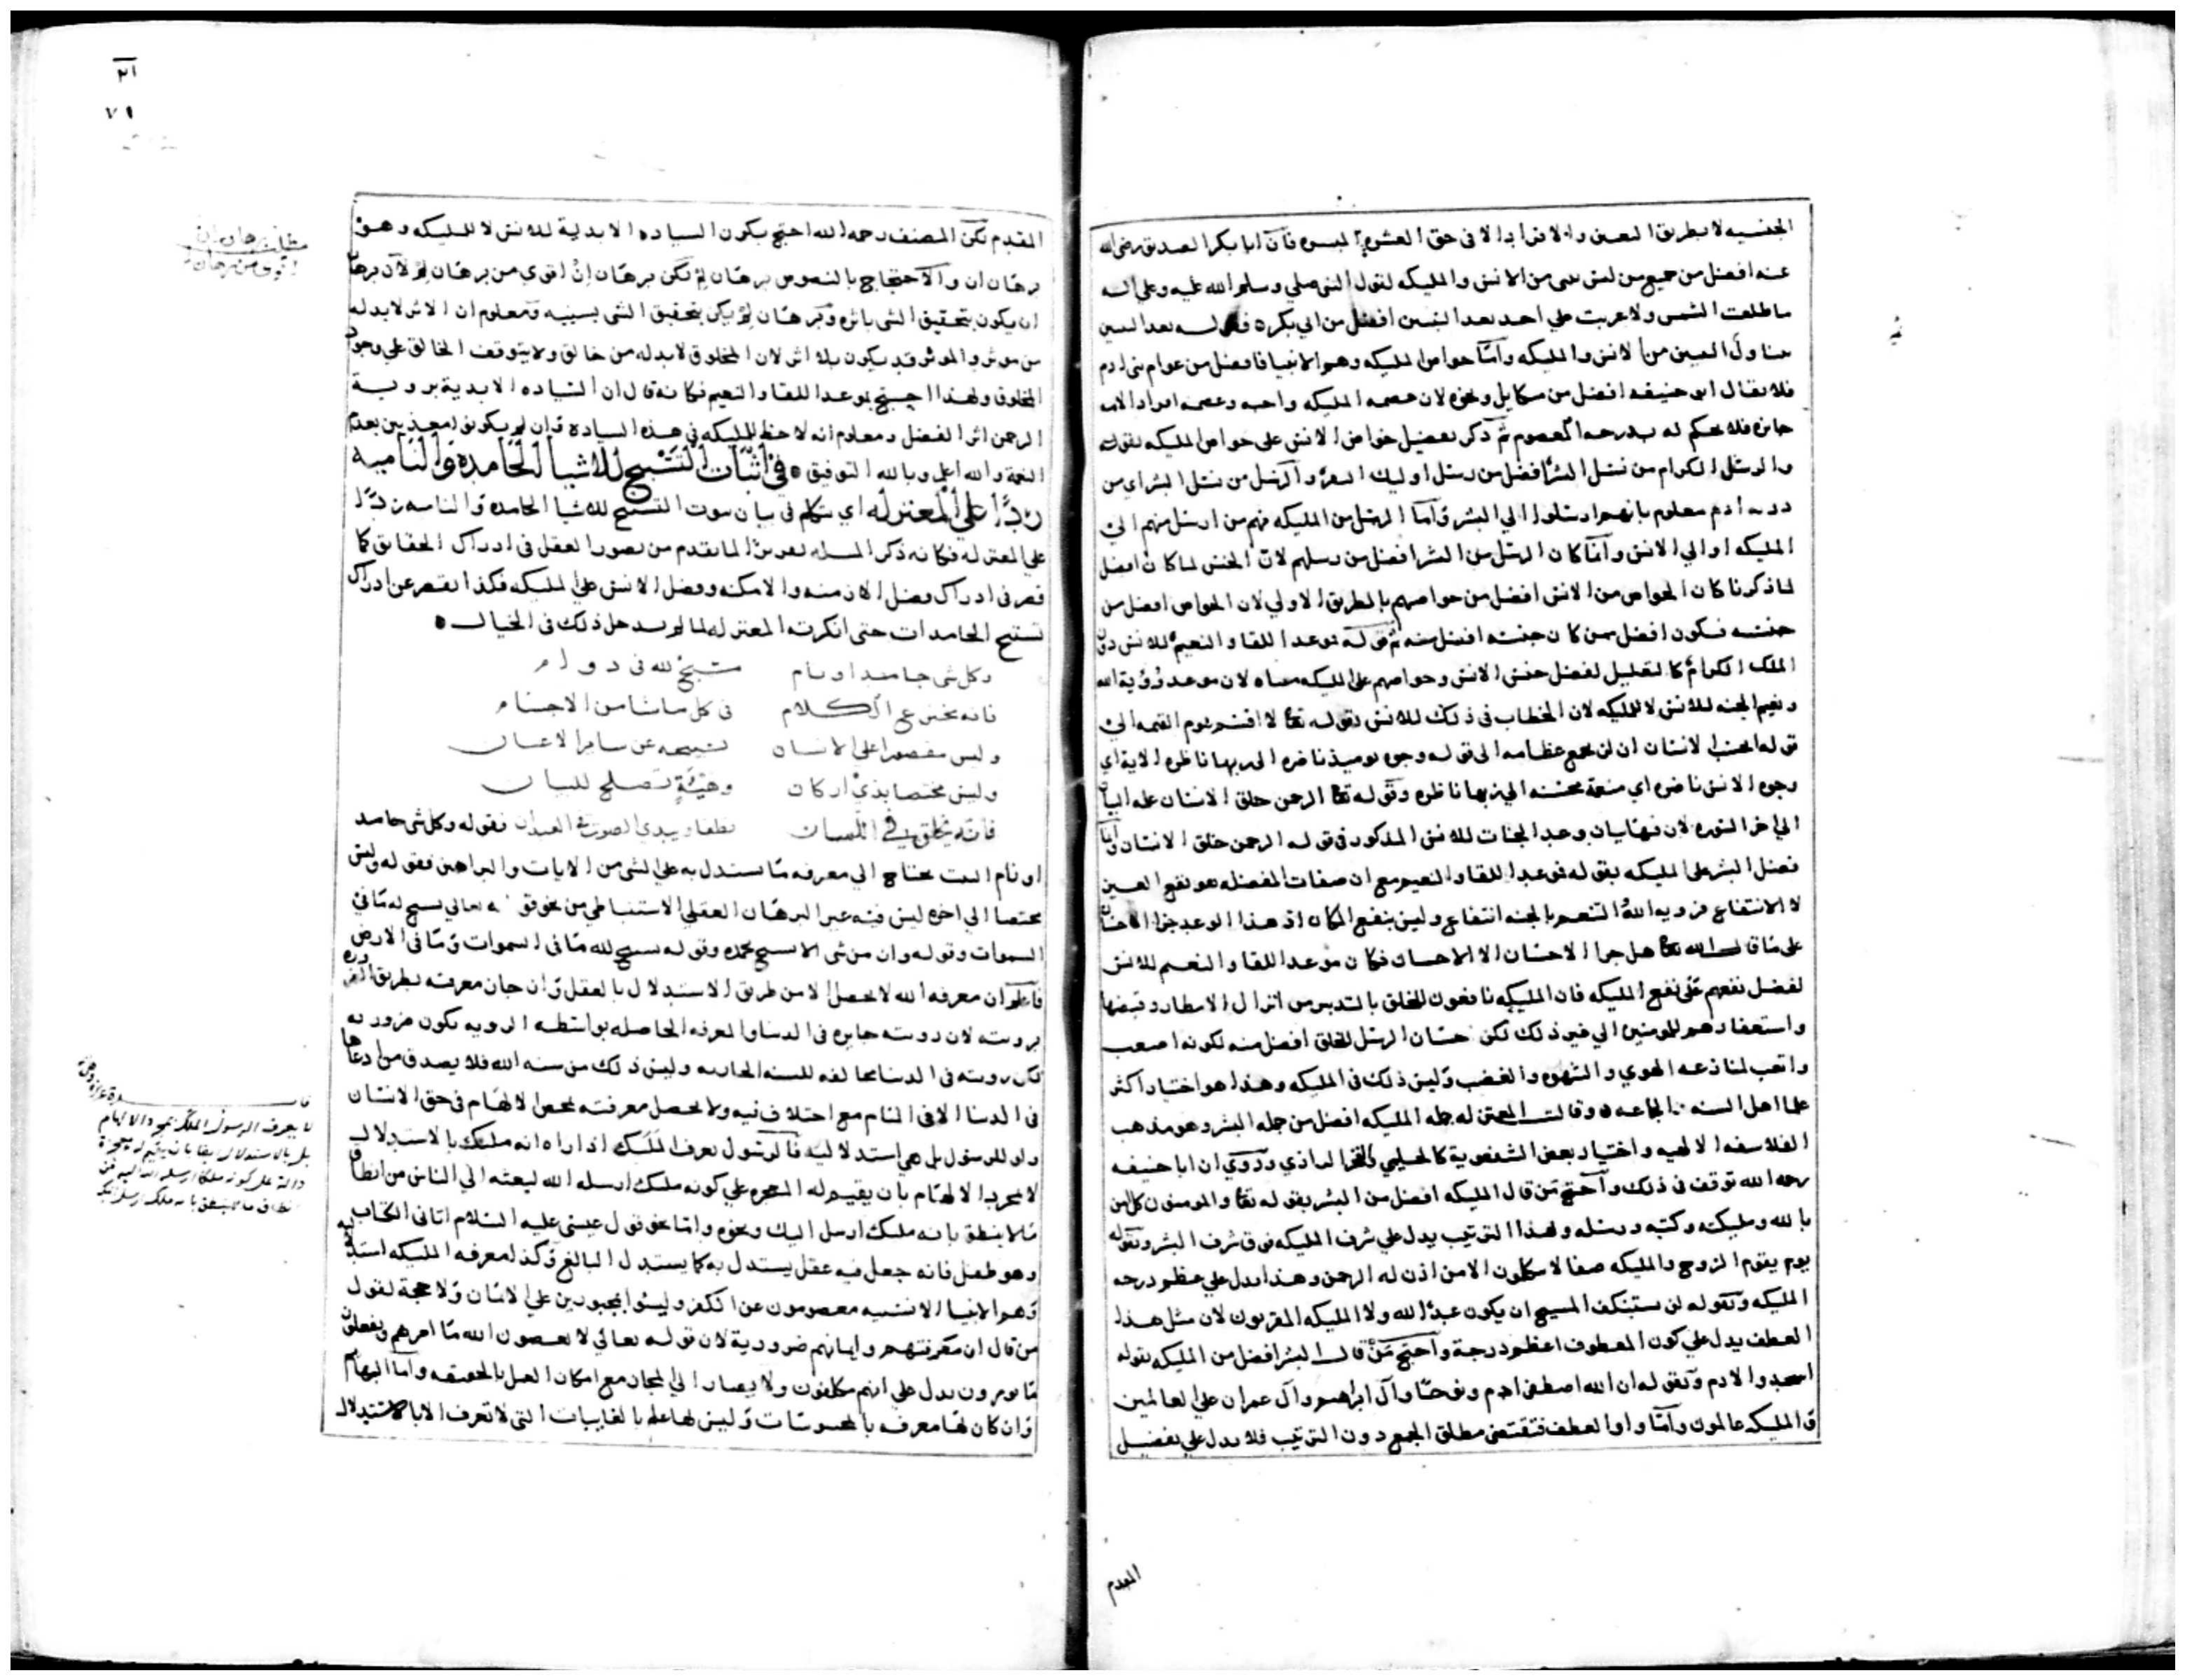 الجنسيه لا بطريق التعين والافراد الا فى حق العشره المبشره فان ابا بكر الصديق رضى الله
عنه افضل من جميع من ليس بنبى من الانس والمليكه لقول النبى صلي وسلم الله عليه وعلى اله
ما طلعت الشمس ولا غربت علي احد بعد النبيين افضل من ابي بكر ه فقوله بعد النبيين
يتناول النبيين من الانس والمليكه وامّا خواص المليكه وهم الانبيا فافضل من عوام بنى ادم
فلا يقال ابو حنيفه افضل من ميكايل ونحوه لان عصمه المليكه واجبه وعصمه افراد الامه
جايزه فلا يحكم له بدرجه المعصوم ثم ذكر تفضيل خواص الانس على خواص المليكه بقوله
والرسل الكرام من نسل البشر افضل من رسل اوليك الـ والرسل من نسل البشر اي من
ذريه ادم معلوم بانهم ارسلوا الي البشر وامّا الرسل من المليكه فهم من ارسل منهم الى
المليكه او الي الانس وامّا كان الرسل من البشر افضل من رسلهم لان الجنس لما كان افضل
لما ذكرنا كان الخواص من الانس افضل من خواصهم بالطريق الاولي لان الخواص افضل من
جنسه فيكون افضل ممن كان جنسه افضل منه ثم قوله موعد اللقا والنعيم للانس دون
الملك الكرام كالتعليل لفضل جنس الانس وخواصهم على المليكه معناه لان موعد رؤية الله
ونعيم الجنه للانس لا للمليكه لان الخطاب فى ذلك للانس بقوله تعا لا اقسم بيوم القيمه الى
قوله ايحسب الانسان ان لن نجمع عظامه الى قوله وجوه يوميذ ناضره الى ربها ناظره الاية اي
وجوه الانس ناضره اي منعمة محسنه الي ربها ناظره وقوله تعا الرحمن خلق الانسان علمه البيان
الي اخر السوره لان فيها بيان وعد الجنات للانس المذكور فى قوله الرحمن خلق الانسان وامّا
فضل البشر على المليكه بقوله موعد اللقا والنعيم مع ان صفات المفضله هو نفع الغير
لا الانتفاع فرويه الله والتنعم بالجنه انتفاع وليس بنفع لمكان ان هذا الوعد جزا الاحسان
على ما قال الله تعا هل جزا الاحسان الا الاحسان فكان موعد اللقا والنعيم للانس
لفضل نفعهم على نفع المليكه فان المليكه نافعون للخلق بالتدبير من انزال الامطار وقبضها
واستغفارهم للمومنين الي غير ذلك لكن احسان الرسل للخلق افضل منه لكونه اصعب
واتعب لمنازعه الهوي والشهوه والغضب وليس ذلك فى المليكه وهذا هو اختيار اكثر
علما اهل السنه والجماعه ه وقالت المعتزله جمله المليكه افضل من جمله البشر وهو مذهب
الفلاسفه الالهيه واختيار بعض الشفعوية كالحليمي والفخر الرازي وروي ان ابا حنيفه
رحمه الله توقف فى ذلك واحتج من قال المليكه افضل من البشر بقوله تعا والمومنون كل امن
بالله ومليكته وكتبه ورسله وهذا الترتيب يدل علي شرف المليكه فوق شرف البشر وبقوله
يوم يقوم الروح والمليكه صفا لا يتكلمون الا من اذن له الرحمن وهذا يدل علي عظم درجه
المليكه وبقوله لن يستنكف المسيح ان يكون عبدا لله ولا المليكه المقربون لان مثل هذا
العطف يدل علي كون المعطوف اعظم درجة واحتج مَنْ قال البشر افضل من المليكه بقوله
اسجدوا لادم وبقوله ان الله اصطفى ادم ونوحا وآل ابراهيم وآل عمران علي العالمين
والمليكه عالمون وامّا واو العطف فتقتضى مطلق الجمع دون الترتيب فلا يدل علي تفضيل
المقدم
٧١
المقدم لكن المصنف رحمه الله احتج بكون السياده الابدية للانس لا للمليكه وهو
برهان ان والاحتجاج بالنصوص برهان لم لكن برهان انْ اقوي من برهان لم لان برهان
ان يكون بتحقيق الشى باثره وبرهان لم يكون بتحقيق الشى بسببه ومعلوم ان الاثر لا بد له
من موثر والموثر قد يكون بلا اثر لان المخلوق لا بد له من خالق ولا يتوقف الخالق علي وجود
المخلوق ولهذا احتج بموعد اللقا والنعيم فكانه قال ان السياده الابدية بروية
الرحمن اثر الفضل ومعلوم انه لا حظ للمليكه فى هذه السيادة وان لم يكونوا معذبين بعدم
النعمة والله اعلم وبالله التوفيق ه فى اثبات التسبيح للاشيا الجامدة والنامية
ردًّا علي المعتزله اي نتكلم فى بيان ثبوت التسبيح للاشيا الجامده والناميه ردّا
علي المعتزله فكانه ذكر المسله تعريفا لما تقدم من قصور العقل فى ادراك الحقائق كما
قصر فى ادراك فضل الازمنه والامكنه وفضل الانس علي المليكه فكذا يقصر عن ادراك
تسبيح الجامدات حتى انكرته المعتزله لما لم يدخل ذلك فى الخيال ه
وكل شى جامد او نام مسبح لله فى دوام
فانه يخترع الكلام فى كل ما شا من الاجسام
وليس مقصورا علي الانسان تسبيحه عن ساير الاعيان
وليس مختصا بذي اركان وهيئةٍ تصلح للبيان
فانه يخلق في اللسان نطقا ويبدي الصوت فى العيدان فقوله وكل شى جامد
او نام البيت يحتاج الي معرفه ما يستدل به علي الشى من الايات والبراهين فقوله وليس
مختصا الي اخره ليس فيه غير البرهان العقلي الاستنباطي من نحو قوله تعالي يسبح له ما فى
السموات وقوله وان من شى الا يسبح بحمده وقوله سبح لله ما فى السموات وما فى الارض
فاعلم ان معرفه الله لا تحصل الا من طريق الاستدلال بالعقل وان جاز معرفته بطريق الضروره
برويته لان رويته جايزه فى الدنيا والمعرفه الحاصله بواسطه الرويه تكون ضروريه
لكن رويته فى الدنيا مخالفه للسنه الجاريه وليس ذلك من سنه الله فلا يصدق من ادعاها
فى الدنيا الا فى المنام مع اختلاف فيه ولا تحصل معرفته بمحض الالهام فى حق الانسان
ولو للرسول بل هي استدلاليه فالرسول يعرف الملك اذا راه انه ملك بالاستدلال
لا بمجرد الالهام بان يقيم له المعجزه علي كونه ملك ارسله الله لبعثه الي الناس من انطاق
ما لا ينطق بانه ملك ارسل اليك ونحوه وامّا نحو قول عيسى عليه السلام اتانى الكتاب
وهو طفل فانه جعل فيه عقل يستدل به كما يستدل البالغ وكذا معرفه المليكه استدلاليه
وهم الانبيا الانسيه معصومون عن الكفر وليسوا مجبورين علي الايمان ولا حجة لقول
من قال ان معرفتهم وايمانهم ضرورية لان قوله تعالي لا يعصون الله ما امرهم ويفعلون
ما يومرون يدل علي انهم مكلفون ولا يصار الي المجاز مع امكان العمل بالحقيقه وامّا البهايم
وان كان لها معرفه بالمحسوسات وليس لها علم بالغايبات التى لا تعرف الا بالاستدلال
مطلب برهان ان
اقوى من برهان لم
لا يعرف الرسول الملك بمجرد الالهام
بل بالاستدلال ايضا بان يقيم له معجزة
دالة على كونه ملكا ارسله الله اليه من
انطاق ما لا ينطق بانه ملك ارسل اليك